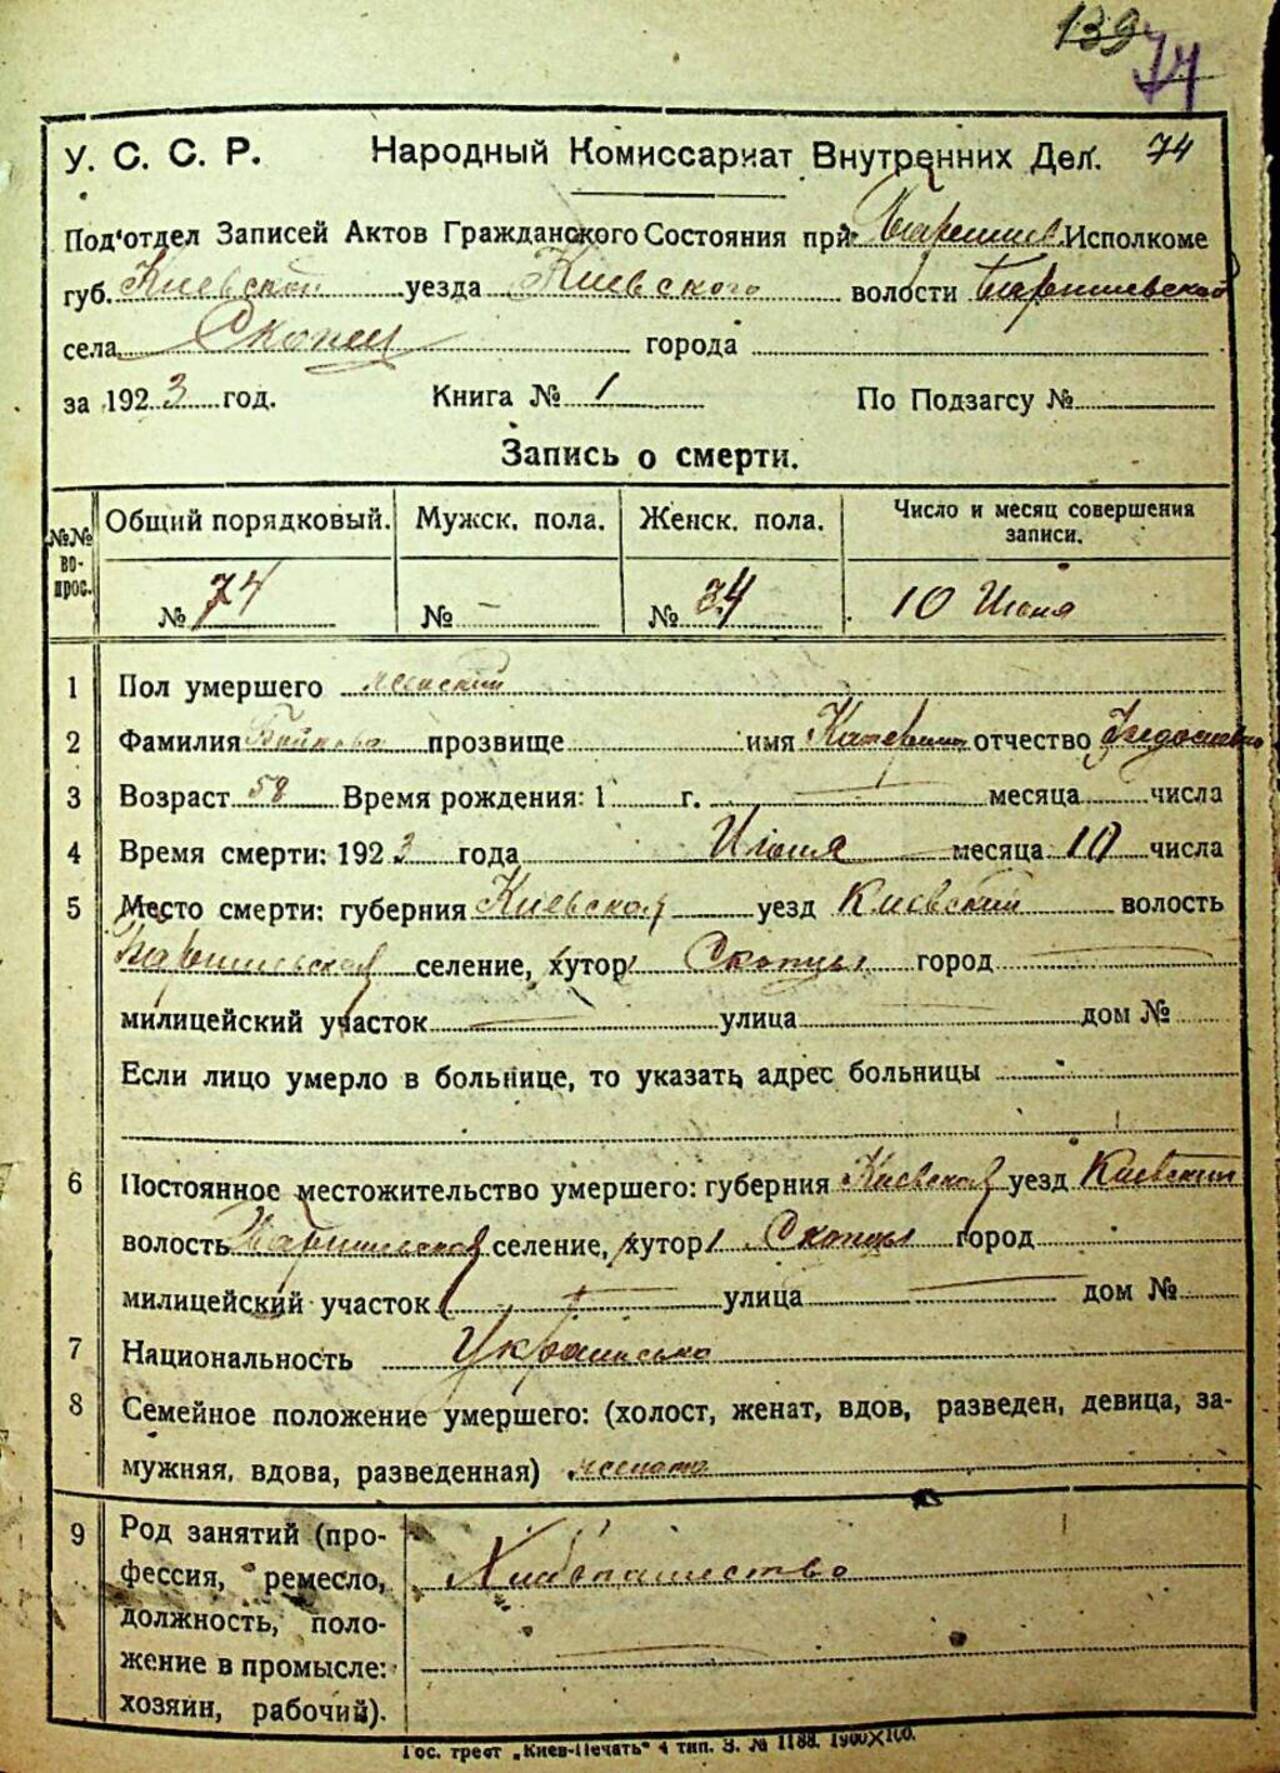 139
74
У. С. С. Р. Народный Комиссариат Внутренних Дел. 74
Под'отдел Записей Актов Гражданского Состояния при Баришев. Исполкоме
губ. Киевской уезда Киевского волости Баришевской
села Скопци города
за 1923 год. Книга № 1 По Подзагсу №
Запись о смерти.
№№ вопрос. Общий порядковый. Мужск. пола. Женск. пола. Число и месяц совершения записи.
№ 74 № – № 34 10 Июня
1 Пол умершего женский
2 Фамилия прозвище имя Катерина отчество
3 Возраст 58 Время рождения: 1 г. месяца числа
4 Время смерти: 1923 года Июня месяца 10 числа
5 Место смерти: губерния Киевская уезд Киевский волость
Баришевская селение, хутор Скопцы город
милицейский участок улица дом №
Если лицо умерло в больнице, то указать адрес больницы
6 Постоянное местожительство умершего: губерния Киевская уезд Киевский
волость Баришевская селение, хутор Скопцы город
милицейский участок улица дом №
7 Национальность
8 Семейное положение умершего: (холост, женат, вдов, разведен, девица, за-
мужняя, вдова, разведенная) жената
9 Род занятий (про-
фессия, ремесло, Хлибопашество
должность, поло-
жение в промысле:
хозяин, рабочий).
Гос. трест „Киев-Печать" 4 тип. З. № 1188. 1900Х100.